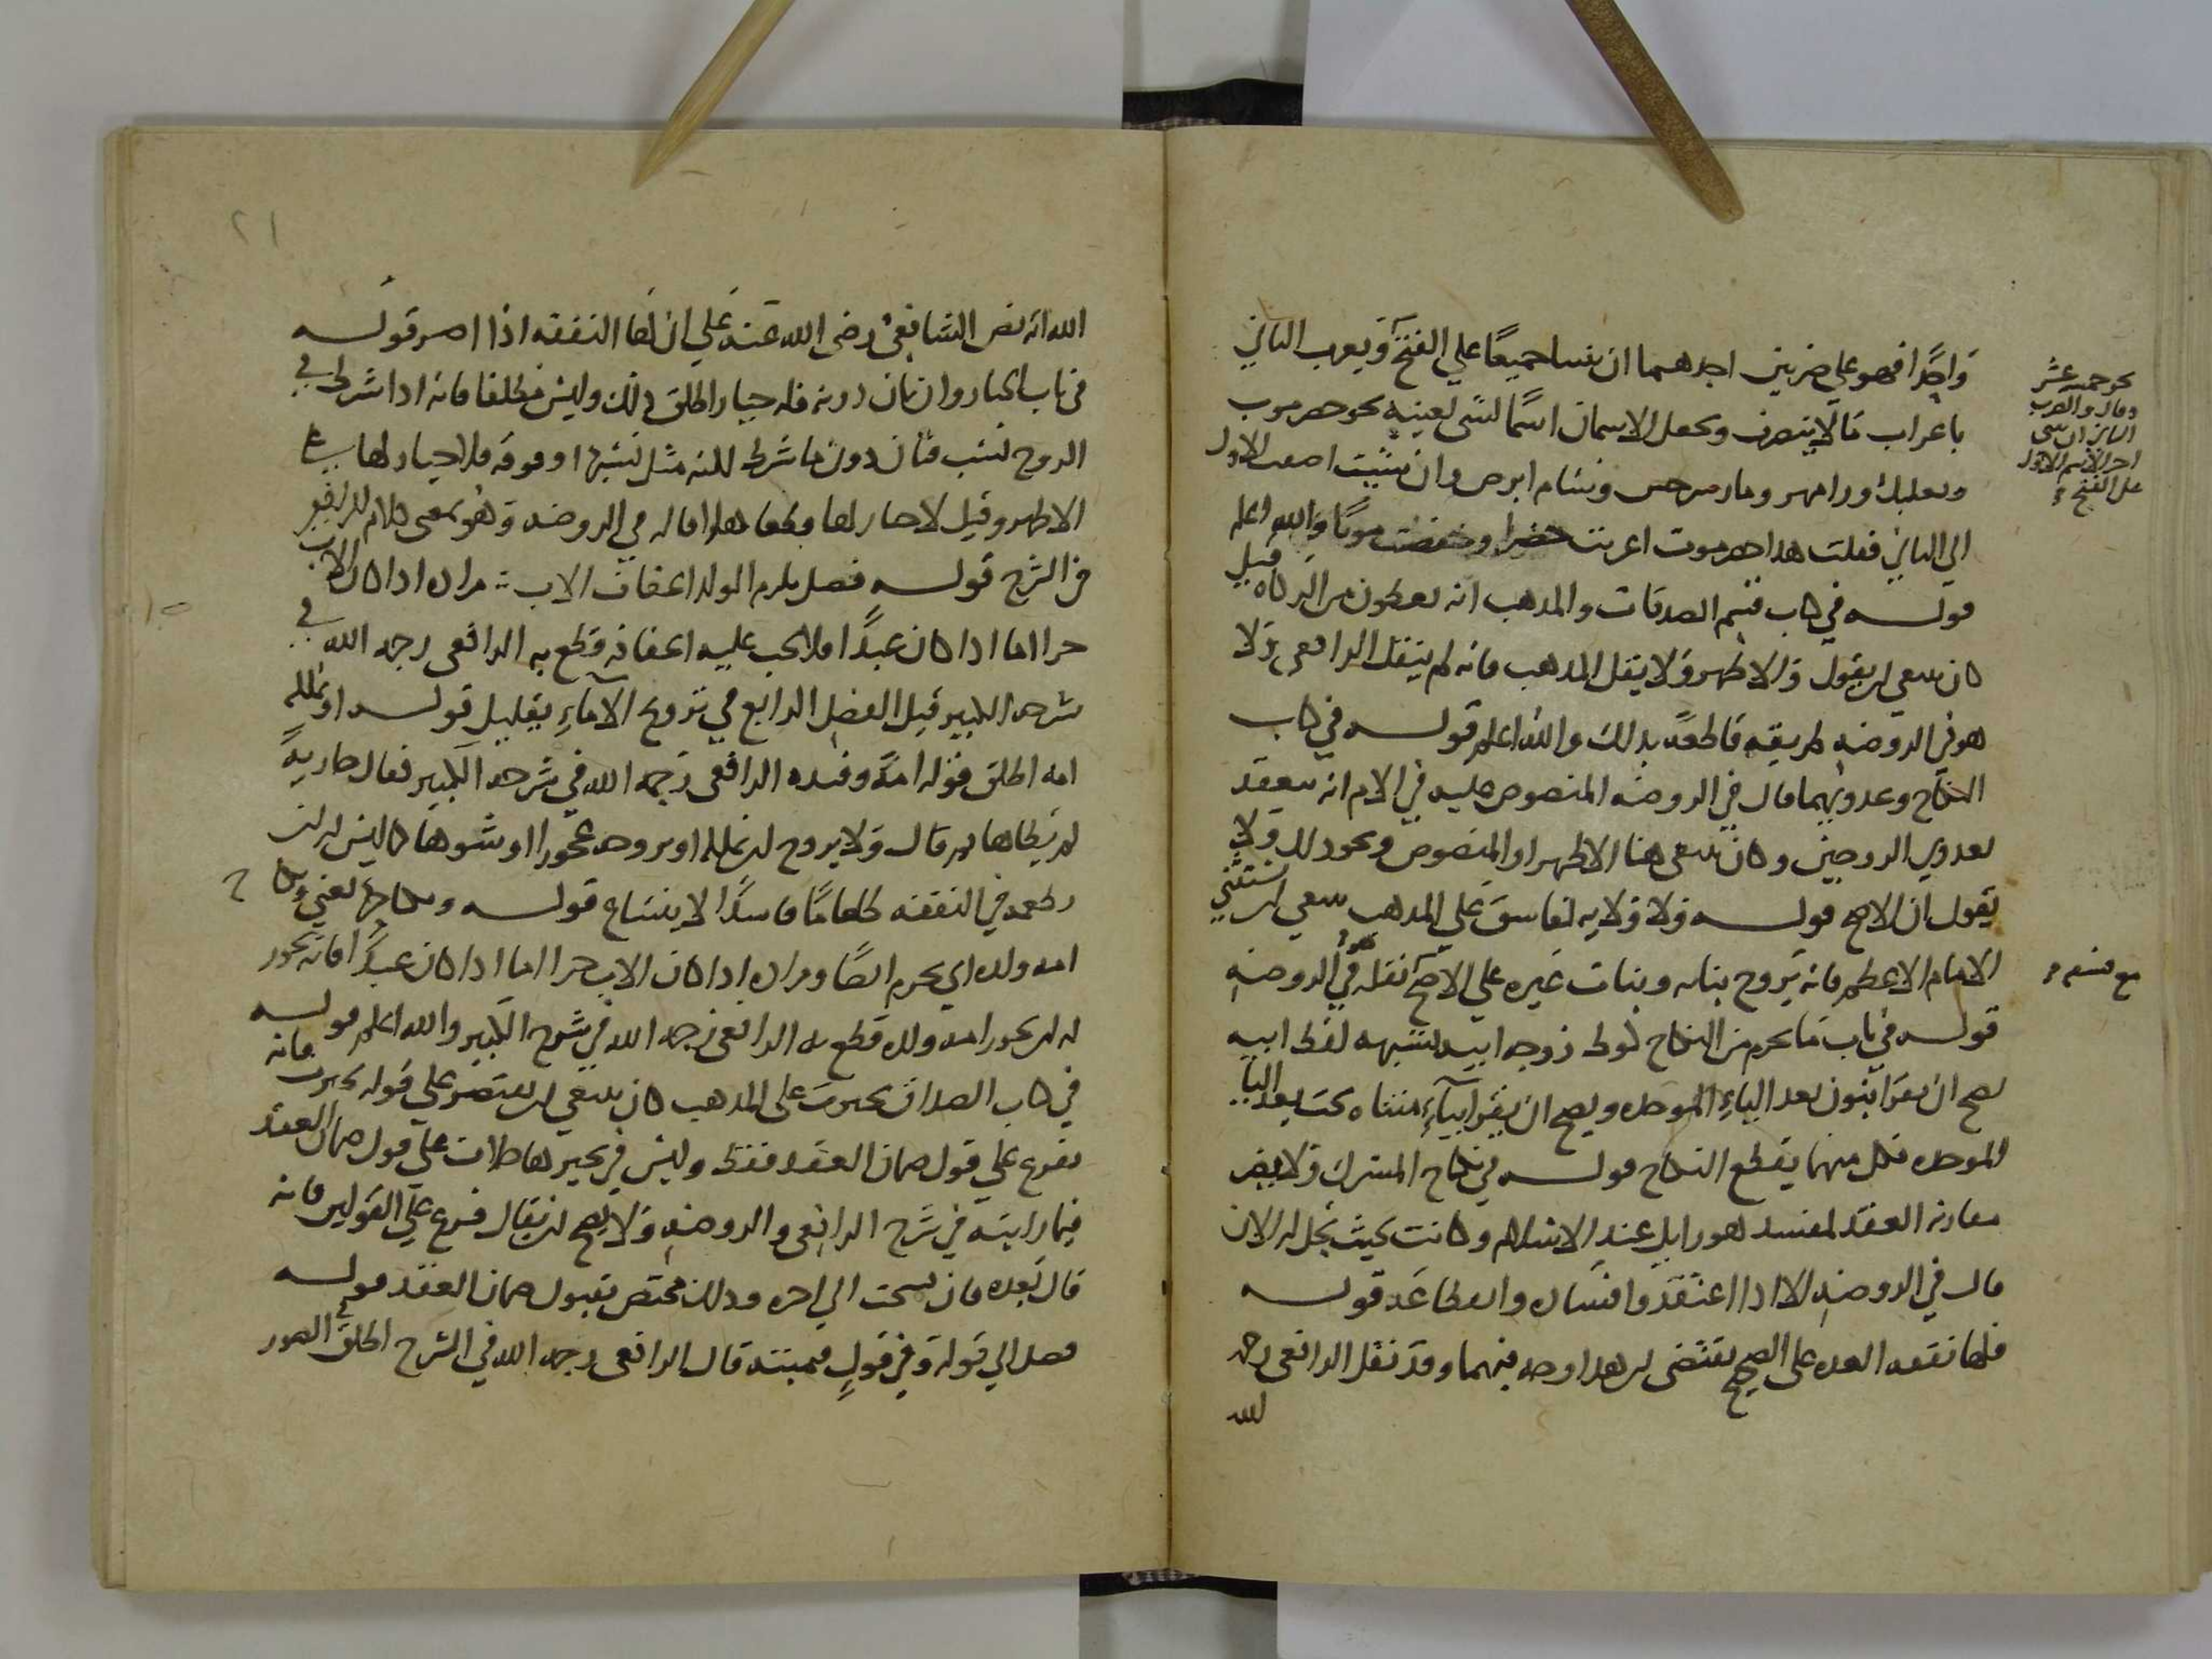 واحدًا فهو علي ضربين احدهما ان يبنيا جميعًا علي الفتح ويعرب الثاني
نحو خمسة عشر
والضرب
الثاني ان يبنى
اخر الاسم الاول
على الفتح
باعراب ما لا ينصرف ويجعل الاسمان اسمًا لشي لعينه نحو حضرموت
وبعلبك ورامهرمز ومارسرجس وسام ابرص وان شئت اضفت الاول
الي الثاني فقلت هذا حضرموت اعربت حضرا وخفضت موتًا والله اعلم
قولــه في كتاب قسم الصدقات والمذهب انه يعطون من الزكاه قيل
كان ينبغي ان يقول والاظهر ولا يقل المذهب فانه لم ينقل الرافعي ولا
هو في الروضه طريقه قاطعة بذلك والله اعلم قولــه في كتاب
النكاح وعدويهما قال في الروضه المنصوص عليه في الام انه ينعقد
بعدوي الزوجين وكان ينبغي هنا الاظهر او المنصوص ونحو ذلك ولا
يقول ان الاصح قولــه ولا ولايه لفاسق علي المذهب ينبغي ان يستثني
الامام الاعظم فانه يزوج بناته وبنات غيره علي الاصح نقله في الروضه
مع فسقه
قولــه في باب ما يحرم من النكاح كوطئ زوجه ابيه بشبهه لفظ ابيه
يصح ان يقرا بنون بعد الباء الموحده ويصح ان يقرا بياء مثناه تحت بعد الباء
الموحده فكل منهما يقطع النكاح قولــه في نكاح المشرك ولا يضر
مقارنه العقد لمفسد هو زايل عند الاسلام وكانت بحيث تحل له الان
قال في الروضه الا اذا اعتقدوا فساده وانقطاعه قولــه
فلها نفقه العده على الصحيح يقتضي ان هذا وجه فيهما وقد نقل الرافعي رحمه
الله
٢١
الله انه نص الشافعي رضى الله عنه علي ان لها النفقه اذا اصر قولــه
في باب الخيار وان بان دونه فله خيار اطلق ذلك وليس مطلقا فانه اذا شرط في
الزوج نسب فبان دون ما شرط لكنه مثل نسبها او فوقه فلا خيار لها علي
الاظهر وقيل لا خيار لها قطعا هكذا قاله في الروضه وهو بمعنى كلام الرافعي
في الشرح قولــه فصل يلزم الولد اعفاف الاب مراده اذا كان الاب
حرا اما اذا كان عبدًا فلا يجب عليه اعفافه قطع به الرافعي رحمه الله في
شرحه الكبير قبل الفصل الرابع في تزويج الاماء بقليل قولــه او يملكه
امه اطلق قوله امة وقيده الرافعي رحمه الله في شرحه الكبير فقال جاريةً
لم يطاها ثم قال ولا يزوج ان يملكه او يزوجه عجوزا او شوها كما ليس له ان
يطعمه في النفقه طعامًا فاسدًا لا ينساغ قولــه ونكاحها يعني نكاح
امه ولده اي يحرم ايضًا ومراده اذا كان الاب حرا اما اذا كان عبدًا فانه يجوز
له ان يتزوج امه ولده قطع به الرافعي رحمه الله في شرح الكبير والله اعلم قولــه
في كتاب الصداق تخيرت على المذهب كان ينبغي ان يقتصر علي قوله تخيرت فانه
تفرع علي قول ضمان العقد فقط وليس في تخيرها خلاف علي قول ضمان العقد
فيما رايته في شرح الرافعي والروضه ولا يصح ان يقال فرع علي القولين فانه
قال بعده فان فسخت الي اخره وذلك مختص بقبول ضمان العقد قولــه
فصل الي قوله وفي قولٍ قيمته قال الرافعي رحمه الله في الشرح اطلق الجمهور